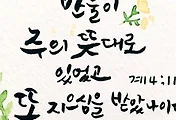 만물이
주의 뜻대로
있었고
계4:11
또 지으심을 받았나이다